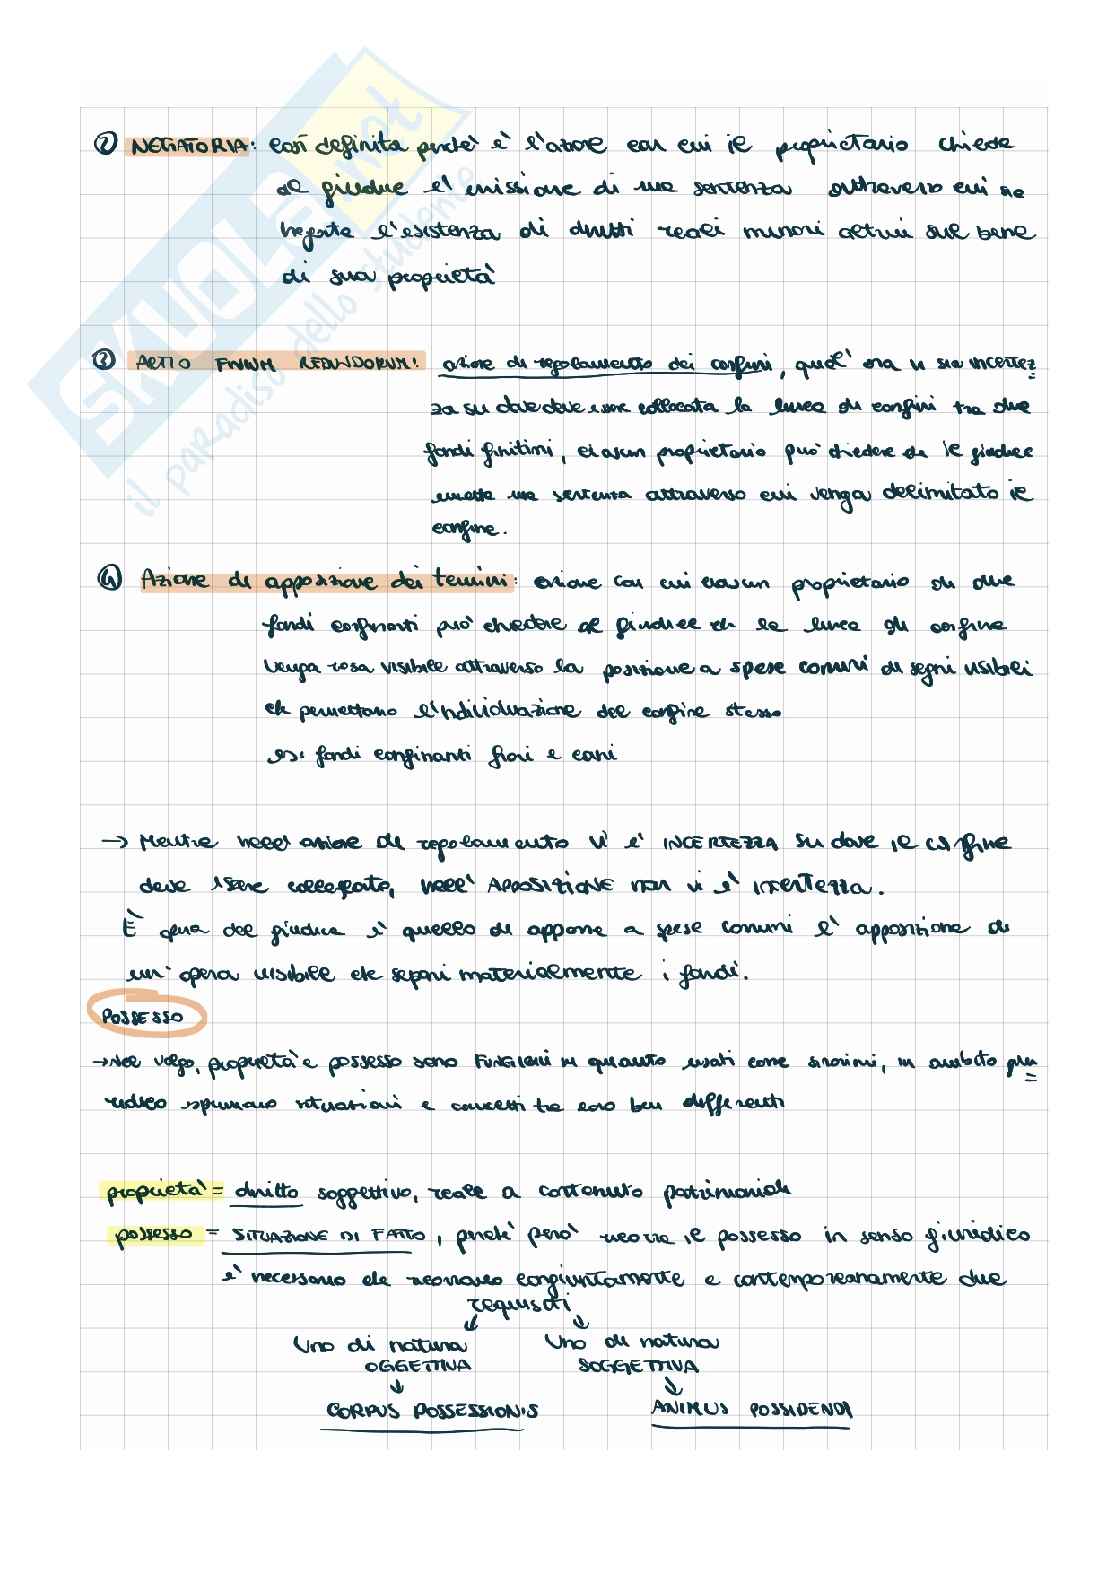 ② NEGATORIA: così definita perché è l'azione con cui il proprietario chiede
al giudice l'emissione di una sentenza attraverso cui sia
negata l'esistenza di diritti reali minori altrui sul bene
di sua proprietà
③ ACTIO FINIUM REGUNDORUM: azione di regolamento dei confini, qual' ora vi sia incertez
za su dove deve essere collocata la linea di confini tra due
fondi finitimi, ciascun proprietario può chiedere che il giudice
emetta una sentenza attraverso cui venga delimitato il
confine.
④ Azione di apposizione dei termini: azione con cui ciascun proprietario di due
fondi confinanti può chiedere al giudice che la linea di confine
venga resa visibile attraverso la posizione a spese comuni di segni visibili
che permettano l'individuazione del confine stesso
es: fondi confinanti fiori e cani
→ Mentre nell'azione di regolamento vi è INCERTEZZA su dove il confine
deve essere collocato, nell'APPOSIZIONE non vi è incertezza.
È del giudice è quello di apporre a spese comuni l'apposizione di
un'opera visibile che separi materialmente i fondi.
POSSESSO
→ Nel volgo, proprietà e possesso sono FUNGIBILI in quanto usati come sinonimi, in ambito giu
ridico esprimono situazioni e concetti tra loro ben differenti
proprietà = diritto soggettivo, reale a contenuto patrimoniale
possesso = SITUAZIONE DI FATTO, perché però ricorra il possesso in senso giuridico
è necessario che ricorrano congiuntamente e contemporaneamente due
requisiti
Uno di natura Uno di natura
OGGETTIVA SOGGETTIVA
CORPUS POSSESSIONIS ANIMUS POSSIDENDI
SKUOLA.net
il paradiso dello studente